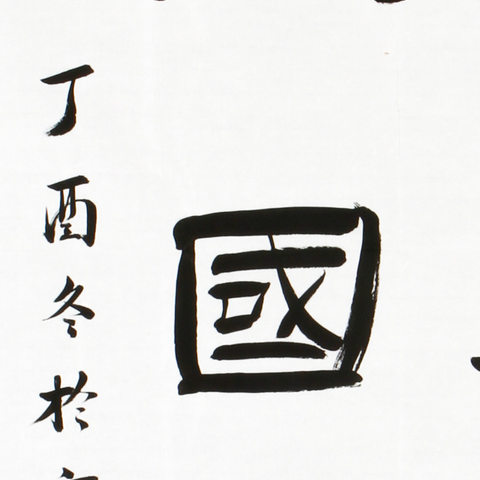 國
丁酉冬於